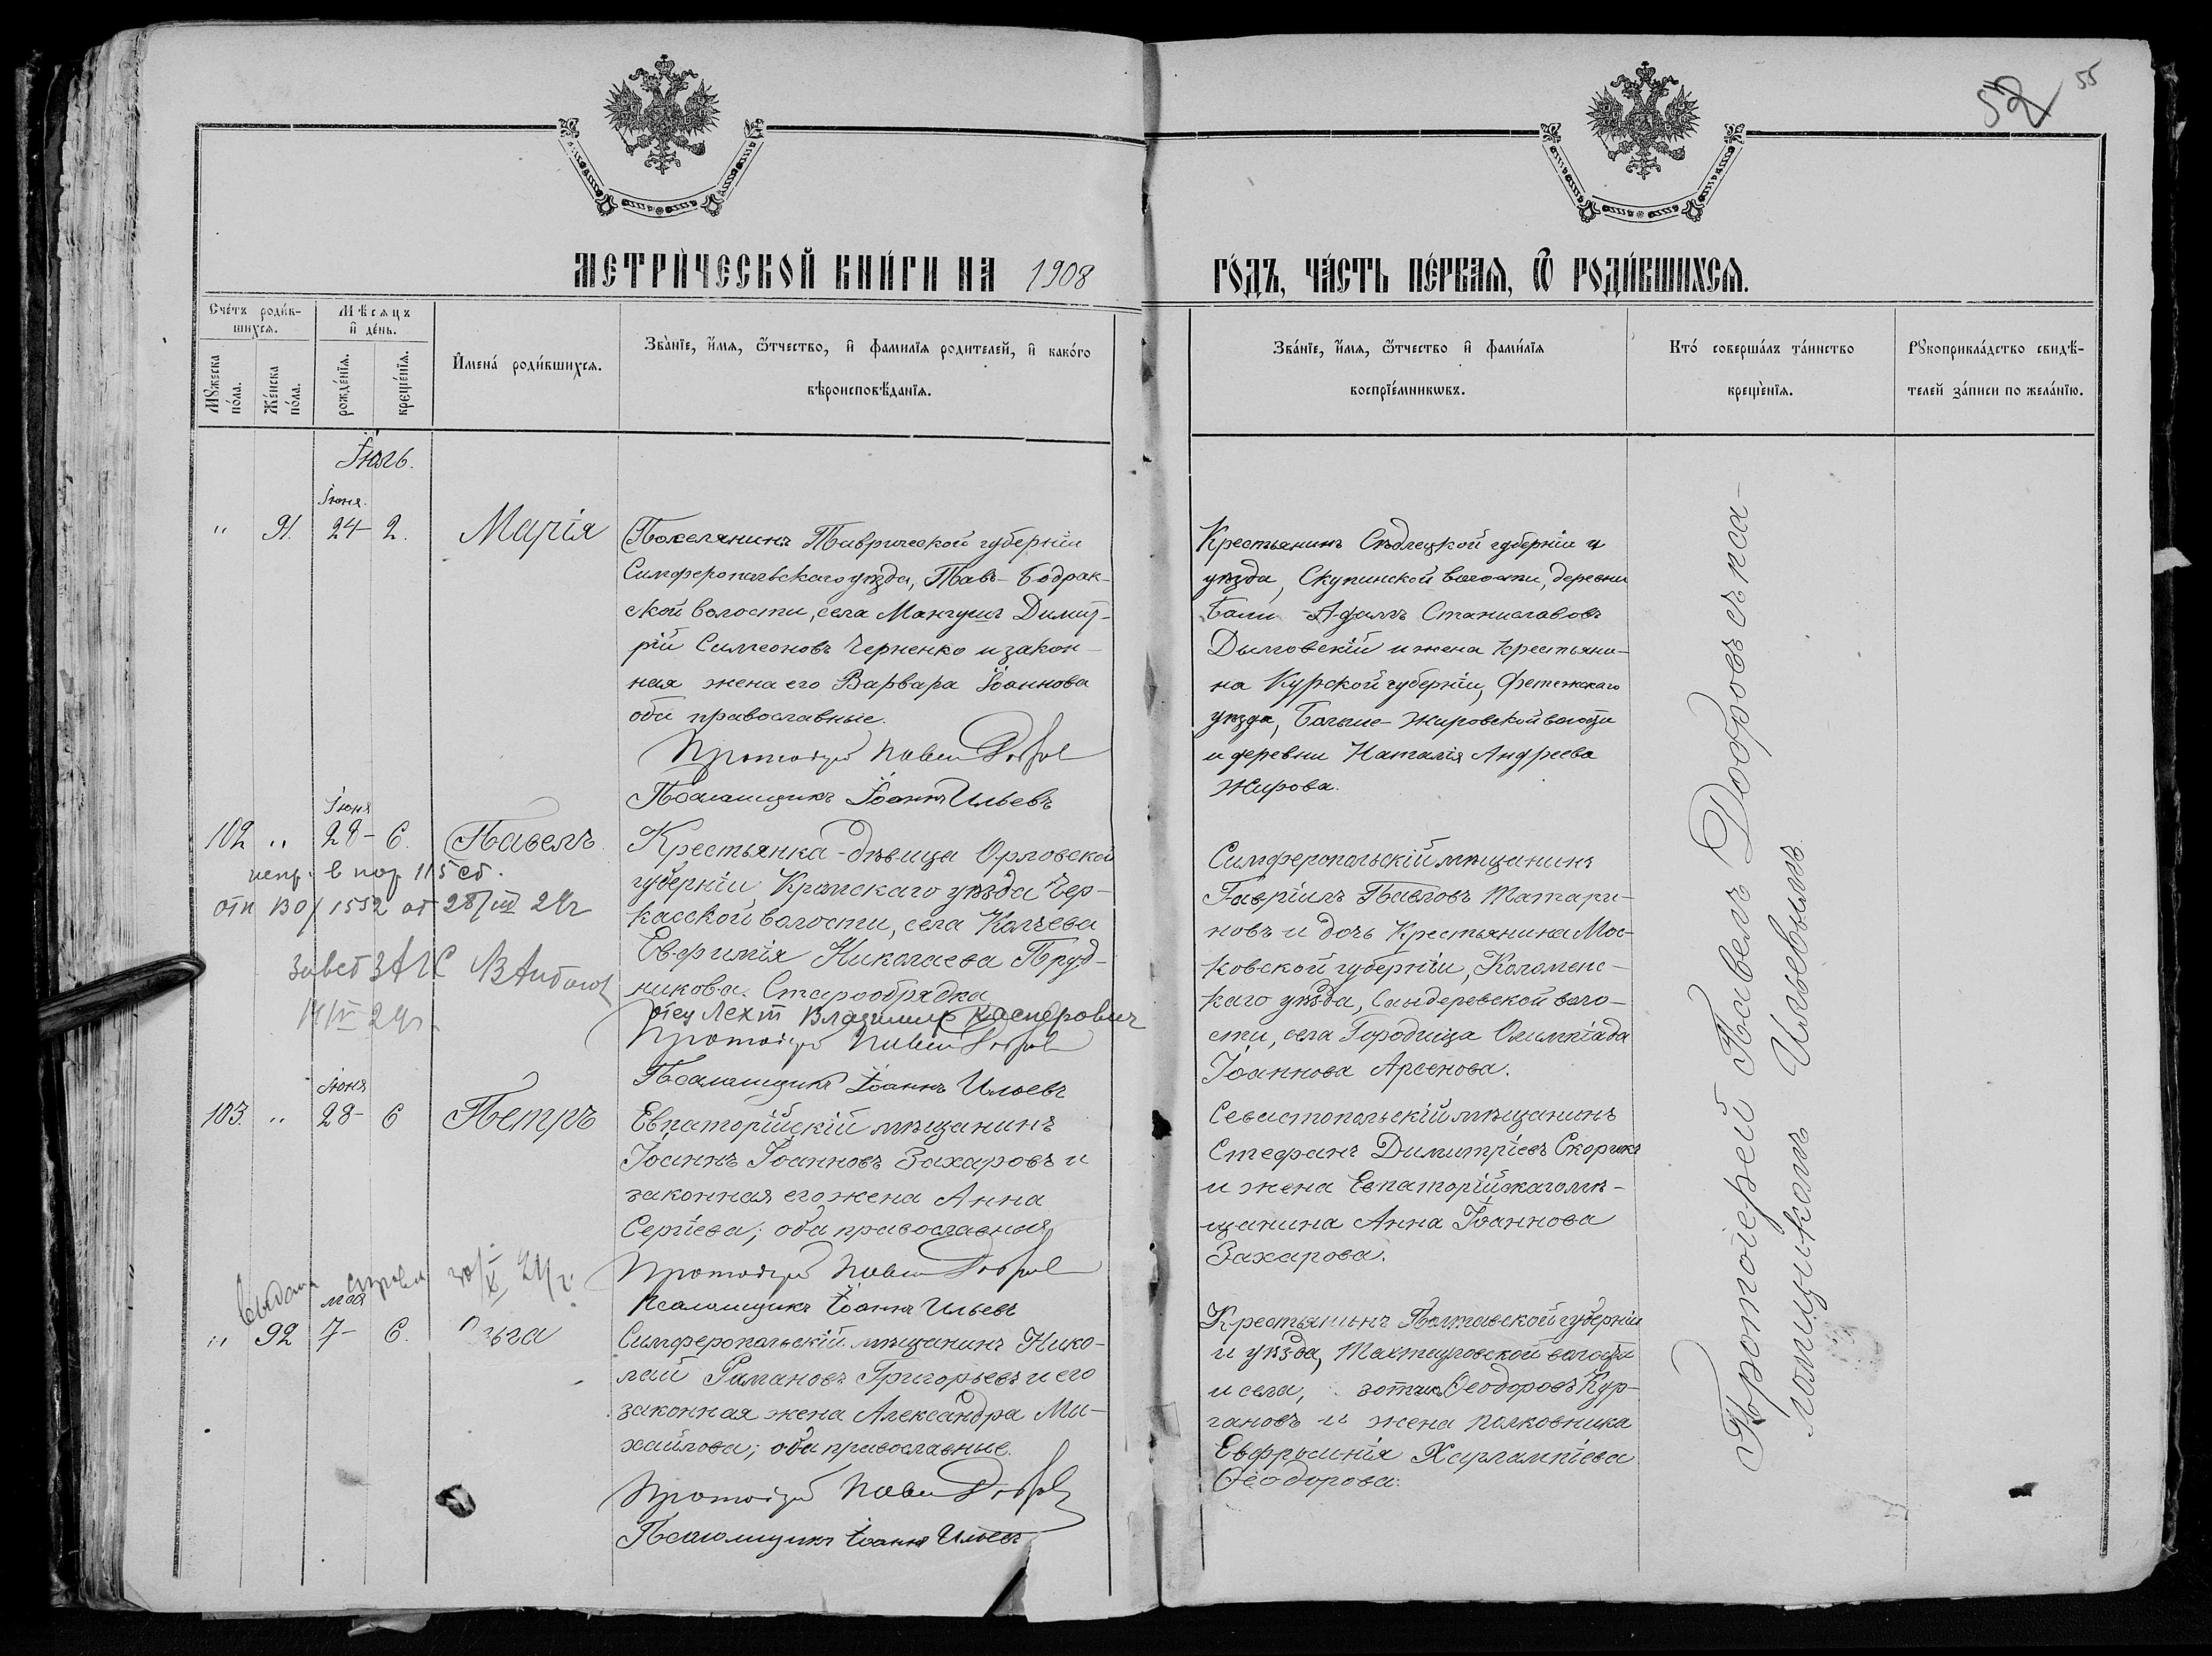 52 55
МЕТРИ́ЧЕСКОЙ КНИ́ГИ НА 1908 ГО́ДЪ, ЧА́СТЬ ПЕ́РВАЯ, Ѿ РОДИ́ВШИХСЯ.
Сче́тъ роди́в-
шихся.
Мѣсяцъ
и҆ де́нь.
Мꙋ́жеска
по́ла.
Же́нска
по́ла.
рожде́нїя.
креще́нїя.
И҆мена́ роди́вшихся.
Зва́нїе, и҆́мя, ѻ҆́тчество, и҆ фами́лїя роди́телей, и҆ како́го
вѣроисповѣ́данїя.
Зва́нїе, и҆́мя, ѻ҆́тчество и҆ фами́лїя
воспрїе́мникѡвъ.
Кто́ соверша́лъ та́инство
креще́нїя.
Рꙋкоприкла́дство свидѣ́-
телей за́писи по жела́нїю.
Іюль.
Іюня.
" 91. 24- 2. Марія
Поселянинъ Таврической губерніи
Симферопольскаго уѣзда, Тавъ-Бодрак-
ской волости, села Мангушъ Димит-
рій Симеоновъ Черненко и закон-
ная жена его Варвара Іоаннова
оба православные.
Протоіерей Павелъ Добров
Псаломщикъ Іоаннъ Ильевъ
Крестьянинъ Сѣдлецкой губерніи и
уѣзда, Скупинской волости, деревни
Бали Адамъ Станиславовъ
Дымовскій и жена крестьяни-
на Курской губерніи, Фатежскаго
уѣзда, Больше-Жировской волости
и деревни Наталія Андреева
Жирова.
Іюня
102 " 28- 6. Павелъ.
испр. в пор 115 сб.
отн ВО/1552 от 28/III 29г
завед ЗАГС
14/IV 29г.
Крестьянка-дѣвица Орловской
губерніи Кромскаго уѣзда Чер-
касской волости, села Колчева
Евфимія Николаева Пруд-
никова. Старообрядка
отец Лехт Владимир Касперович
Протоіерей Павелъ Добров
Псаломщикъ Іоаннъ Ильевъ
Симферопольскій мѣщанинъ
Гавріилъ Павловъ Татари-
новъ и дочь Крестьянина Мос-
ковской губерніи, Коломенс-
каго уѣзда, Сандеревской воло-
сти, села Городища Олимпіада
Іоаннова Арсенова.
Іюня
103. " 28- 6 Петръ
Евпаторійскій мѣщанинъ
Іоаннъ Іоанновъ Захаровъ и
законная его жена Анна
Сергіева; оба православные
Протоіерей Павелъ Добров
Псаломщикъ Іоаннъ Ильевъ
Севастопольскій мѣщанинъ
Стефанъ Димитріевъ Скорикъ
и жена Евпаторійскаго мѣ-
щанина Анна Іоаннова
Захарова.
Выдана справка 30/X 24г.
мая
" 92 7- 6. Ольга
Симферопольскій мѣщанинъ Нико-
лай Романовъ Григорьевъ и его
законная жена Александра Ми-
хайлова; оба православные.
Протоіерей Павелъ Добров
Псаломщикъ Іоаннъ Ильевъ
Крестьянинъ Полтавской губерніи
и уѣзда, Тахтауловской волости
и села, Зотикъ Ѳеодоровъ Кур-
гановъ и жена полковника
Евфросинія Харлампіева
Ѳеодорова.
Протоіерей Павелъ Добровъ съ пса-
ломщикомъ Ильевымъ.